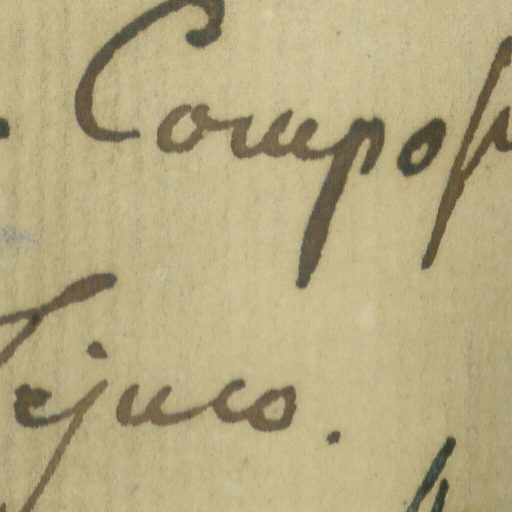 Compos
Tejuco.